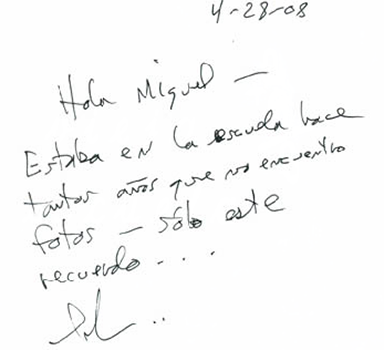 4-28-08
Hola Miguel —
Estaba en la escuela hace
tantos años que no encuentro
fotos — sólo este
recuerdo . . .